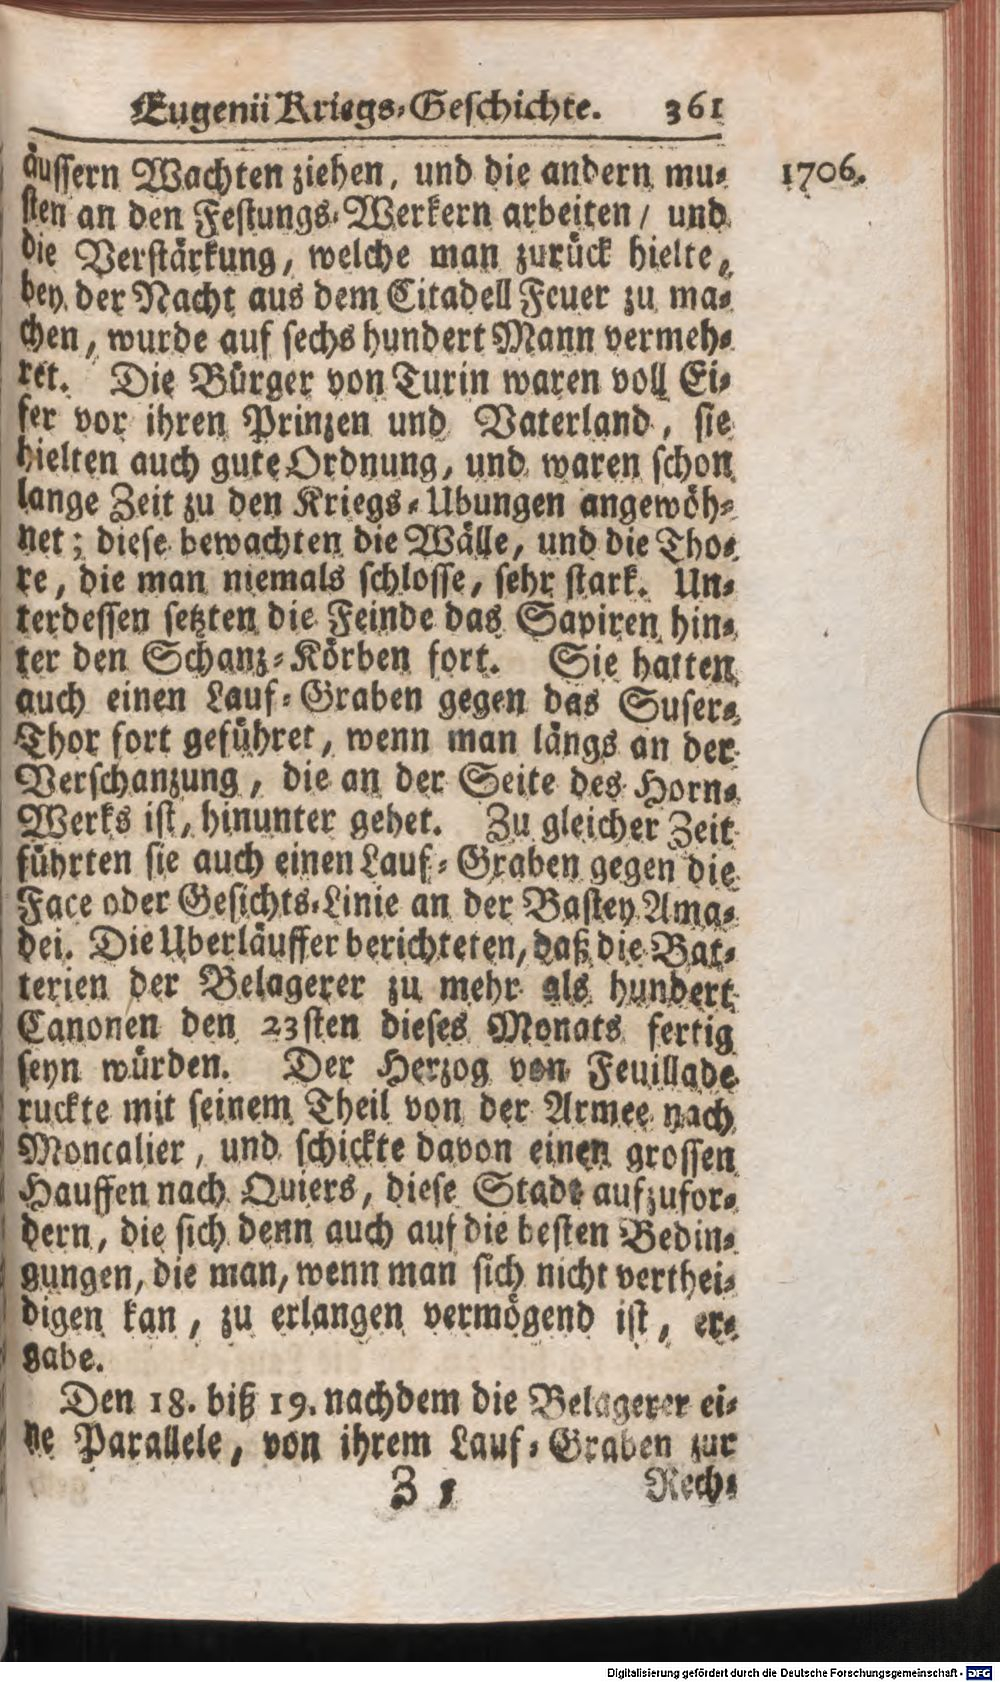 Eugenii Kriegs-Geschichte. 361
äussern Wachten ziehen, und die andern mu-
1706.
sten an den Festungs-Werkern arbeiten / und
die Verstärkung, welche man zurück hielte,
bey der Nacht aus dem Citadell Feuer zu ma-
chen, wurde auf sechs hundert Mann vermeh-
ret. Die Bürger von Turin waren voll Ei-
fer vor ihren Prinzen und Vaterland, sie
hielten auch gute Ordnung, und waren schon
lange Zeit zu den Kriegs-Ubungen angewöh-
net; diese bewachten die Wälle, und die Tho-
re, die man niemals schlosse, sehr stark. Un-
terdessen setzten die Feinde das Sapiren hin-
ter den Schanz-Körben fort. Sie hatten
auch einen Lauf-Graben gegen das Suser-
Thor fort geführet, wenn man längs an der
Verschanzung, die an der Seite des Horn-
Werks ist, hinunter gehet. Zu gleicher Zeit
führten sie auch einen Lauf-Graben gegen die
Face oder Gesichts-Linie an der Bastey Ama-
dei. Die Uberläuffer berichteten, daß die Bat-
terien der Belagerer zu mehr als hundert
Canonen den 23sten dieses Monats fertig
seyn würden. Der Herzog von Feuillade
ruckte mit seinem Theil von der Armee nach
Moncalier, und schickte davon einen grossen
Hauffen nach Quiers, diese Stadt aufzufor-
dern, die sich denn auch auf die besten Bedin-
gungen, die man, wenn man sich nicht verthei-
digen kan, zu erlangen vermögend ist, er-
gabe.
Den 18. biß 19. nachdem die Belagerer ei-
ne Parallele, von ihrem Lauf-Graben zur
Z 1 Rech-
Digitalisierung gefördert durch die Deutsche Forschungsgemeinschaft - DFG